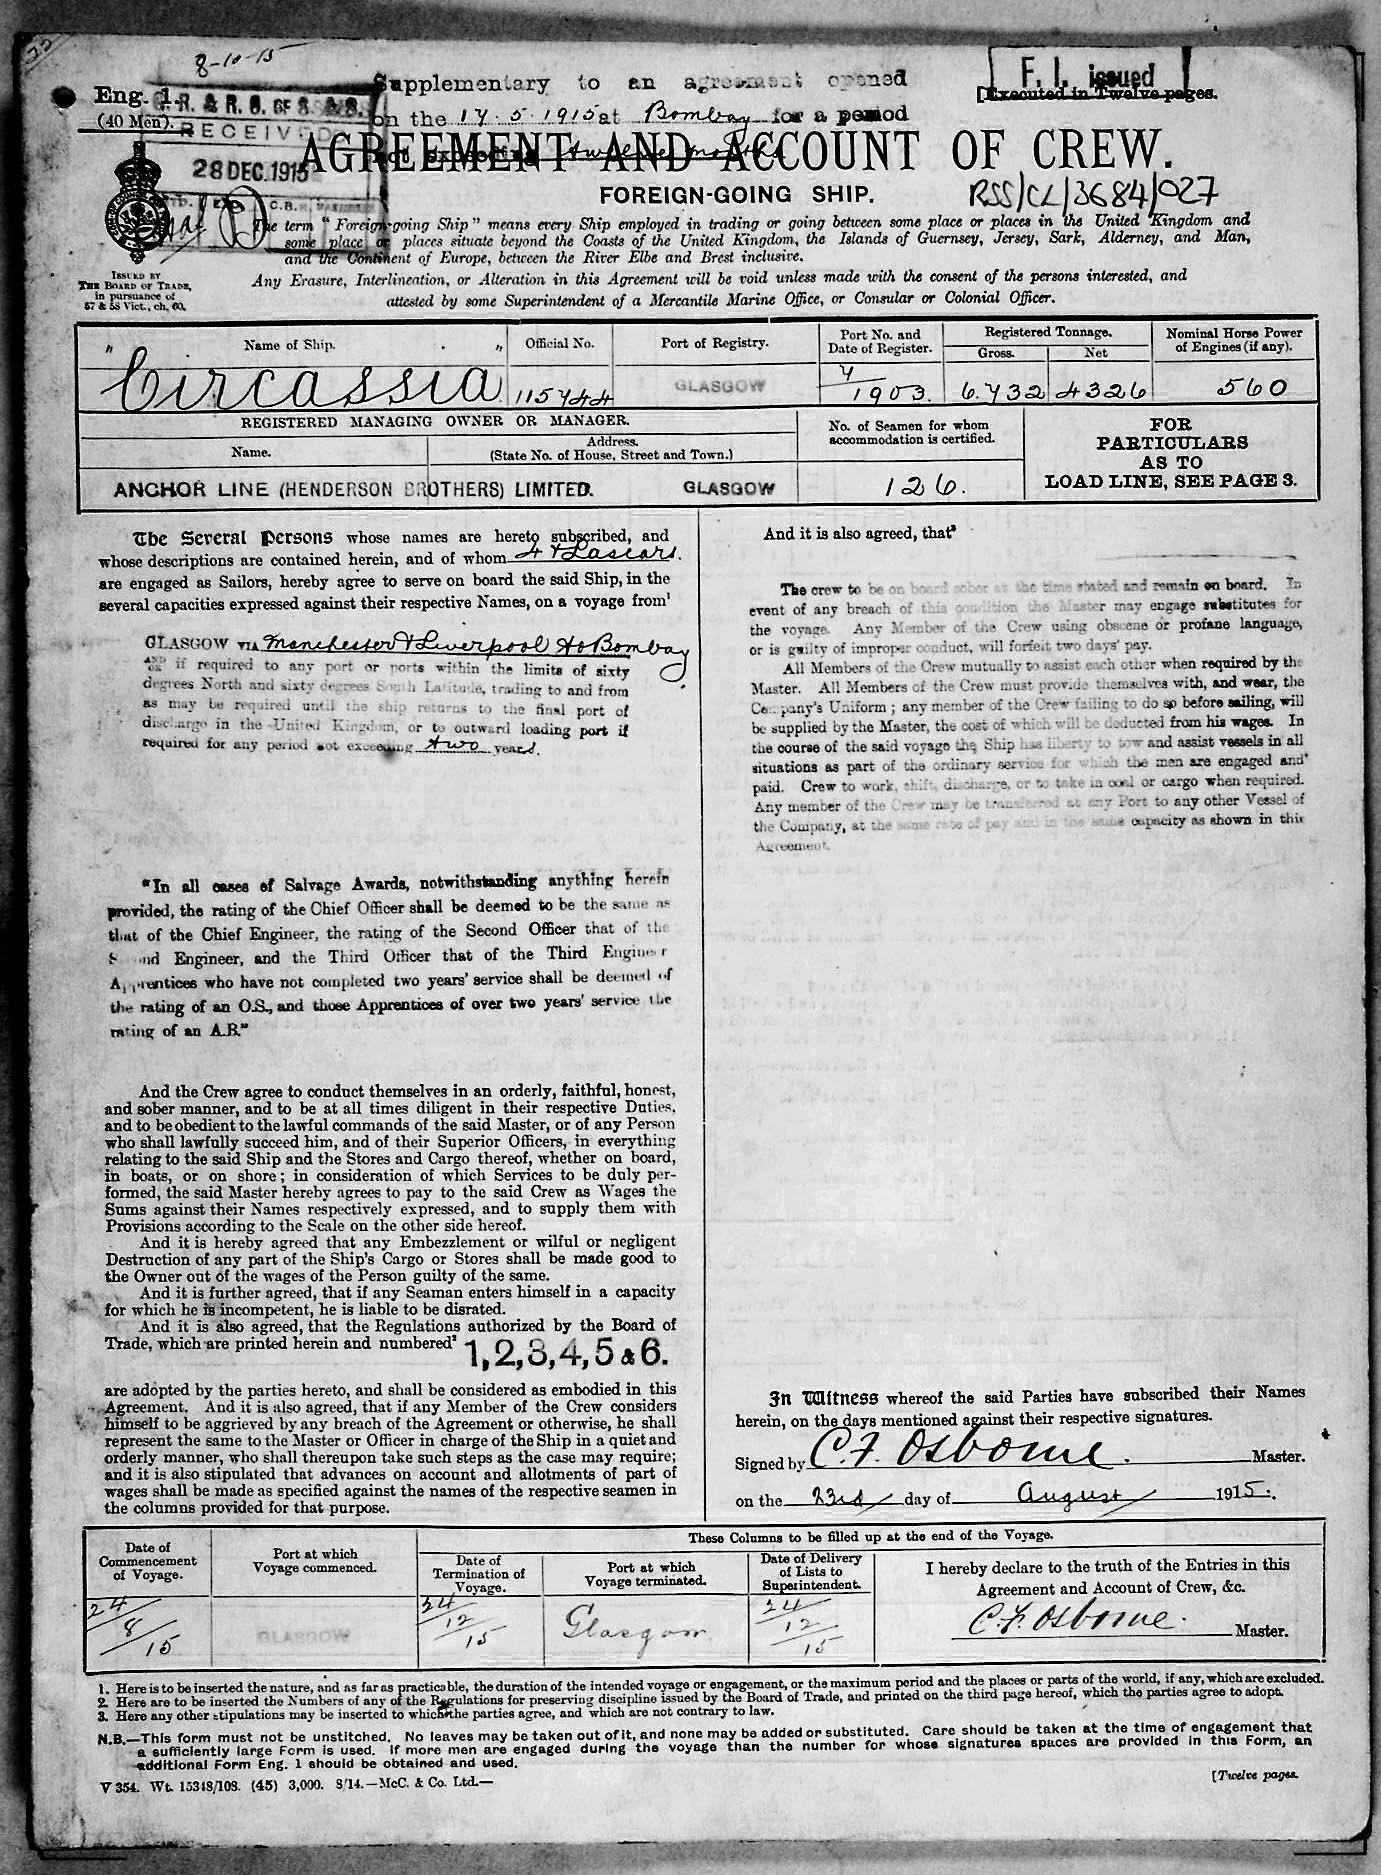 8-10-15
Supplementary to an agreement opened
on the 17. 5. 1915 at Bombay for a period
not exceeding twelve months
F. I. issued
[Executed in Twelve pages.
Eng. 1.
(40 Men).
R. & R. G. OF S. & S.
RECEIVED
28 DEC. 1915
AGREEMENT AND ACCOUNT OF CREW.
FOREIGN-GOING SHIP.
RSS/CL/3684/027
The term "Foreign-going Ship" means every Ship employed in trading or going between some place or places in the United Kingdom and
some place or places situate beyond the Coasts of the United Kingdom, the Islands of Guernsey, Jersey, Sark, Alderney, and Man,
and the Continent of Europe, between the River Elbe and Brest inclusive.
Any Erasure, Interlineation, or Alteration in this Agreement will be void unless made with the consent of the persons interested, and
attested by some Superintendent of a Mercantile Marine Office, or Consular or Colonial Officer.
ISSUED BY
THE BOARD OF TRADE,
in pursuance of
57 & 58 Vict., ch. 60.
Name of Ship.
Official No.
Port of Registry.
Port No. and
Date of Register.
Registered Tonnage.
Gross.
Net
Nominal Horse Power
of Engines (if any).
"Circassia"
115744
GLASGOW
4/1903.
6732
4326
560
REGISTERED MANAGING OWNER OR MANAGER.
Name.
Address.
(State No. of House, Street and Town.)
No. of Seamen for whom
accommodation is certified.
FOR
PARTICULARS
AS TO
LOAD LINE, SEE PAGE 3.
ANCHOR LINE (HENDERSON BROTHERS) LIMITED.
GLASGOW
126.
The Several Persons whose names are hereto subscribed, and
whose descriptions are contained herein, and of whom 4 & Lascars.
are engaged as Sailors, hereby agree to serve on board the said Ship, in the
several capacities expressed against their respective Names, on a voyage from¹
GLASGOW VIA Manchester & Liverpool to Bombay
AND OR if required to any port or ports within the limits of sixty
degrees North and sixty degrees South Latitude, trading to and from
as may be required until the ship returns to the final port of
discharge in the United Kingdom, or to outward loading port if
required for any period not exceeding two years.
"In all cases of Salvage Awards, notwithstanding anything herein
provided, the rating of the Chief Officer shall be deemed to be the same as
that of the Chief Engineer, the rating of the Second Officer that of the
S nd Engineer, and the Third Officer that of the Third Engineer
Apprentices who have not completed two years' service shall be deemed of
the rating of an O.S., and those Apprentices of over two years' service the
rating of an A.B."
And the Crew agree to conduct themselves in an orderly, faithful, honest,
and sober manner, and to be at all times diligent in their respective Duties,
and to be obedient to the lawful commands of the said Master, or of any Person
who shall lawfully succeed him, and of their Superior Officers, in everything
relating to the said Ship and the Stores and Cargo thereof, whether on board,
in boats, or on shore; in consideration of which Services to be duly per-
formed, the said Master hereby agrees to pay to the said Crew as Wages the
Sums against their Names respectively expressed, and to supply them with
Provisions according to the Scale on the other side hereof.
And it is hereby agreed that any Embezzlement or wilful or negligent
Destruction of any part of the Ship's Cargo or Stores shall be made good to
the Owner out of the wages of the Person guilty of the same.
And it is further agreed, that if any Seaman enters himself in a capacity
for which he is incompetent, he is liable to be disrated.
And it is also agreed, that the Regulations authorized by the Board of
Trade, which are printed herein and numbered² 1,2,3,4,5 & 6.
are adopted by the parties hereto, and shall be considered as embodied in this
Agreement. And it is also agreed, that if any Member of the Crew considers
himself to be aggrieved by any breach of the Agreement or otherwise, he shall
represent the same to the Master or Officer in charge of the Ship in a quiet and
orderly manner, who shall thereupon take such steps as the case may require;
and it is also stipulated that advances on account and allotments of part of
wages shall be made as specified against the names of the respective seamen in
the columns provided for that purpose.
And it is also agreed, that³
The crew to be on board sober at the time stated and remain on board. In
event of any breach of this condition the Master may engage substitutes for
the voyage. Any Member of the Crew using obscene or profane language,
or is guilty of improper conduct, will forfeit two days' pay.
All Members of the Crew mutually to assist each other when required by the
Master. All Members of the Crew must provide themselves with, and wear, the
Company's Uniform; any member of the Crew failing to do so before sailing, will
be supplied by the Master, the cost of which will be deducted from his wages. In
the course of the said voyage the Ship has liberty to tow and assist vessels in all
situations as part of the ordinary service for which the men are engaged and
paid. Crew to work, shift, discharge, or to take in coal or cargo when required.
Any member of the Crew may be transferred at any Port to any other Vessel of
the Company, at the same rate of pay and in the same capacity as shown in this
Agreement.
In Witness whereof the said Parties have subscribed their Names
herein, on the days mentioned against their respective signatures.
Signed by C. F. Osborne. Master.
on the 23rd day of August 1915.
Date of
Commencement
of Voyage.
Port at which
Voyage commenced.
These Columns to be filled up at the end of the Voyage.
Date of
Termination of
Voyage.
Port at which
Voyage terminated.
Date of Delivery
of Lists to
Superintendent.
I hereby declare to the truth of the Entries in this
Agreement and Account of Crew, &c.
24/8/15
GLASGOW
24/12/15
Glasgow
24/12/15
C. F. Osborne. Master.
1. Here is to be inserted the nature, and as far as practicable, the duration of the intended voyage or engagement, or the maximum period and the places or parts of the world, if any, which are excluded.
2. Here are to be inserted the Numbers of any of the Regulations for preserving discipline issued by the Board of Trade, and printed on the third page hereof, which the parties agree to adopt.
3. Here any other stipulations may be inserted to which the parties agree, and which are not contrary to law.
N.B.—This form must not be unstitched. No leaves may be taken out of it, and none may be added or substituted. Care should be taken at the time of engagement that
a sufficiently large Form is used. If more men are engaged during the voyage than the number for whose signatures spaces are provided in this Form, an
additional Form Eng. 1 should be obtained and used.
V 354. Wt. 15318/108. (45) 3,000. 8/14.—McC. & Co. Ltd.—
[Twelve pages.